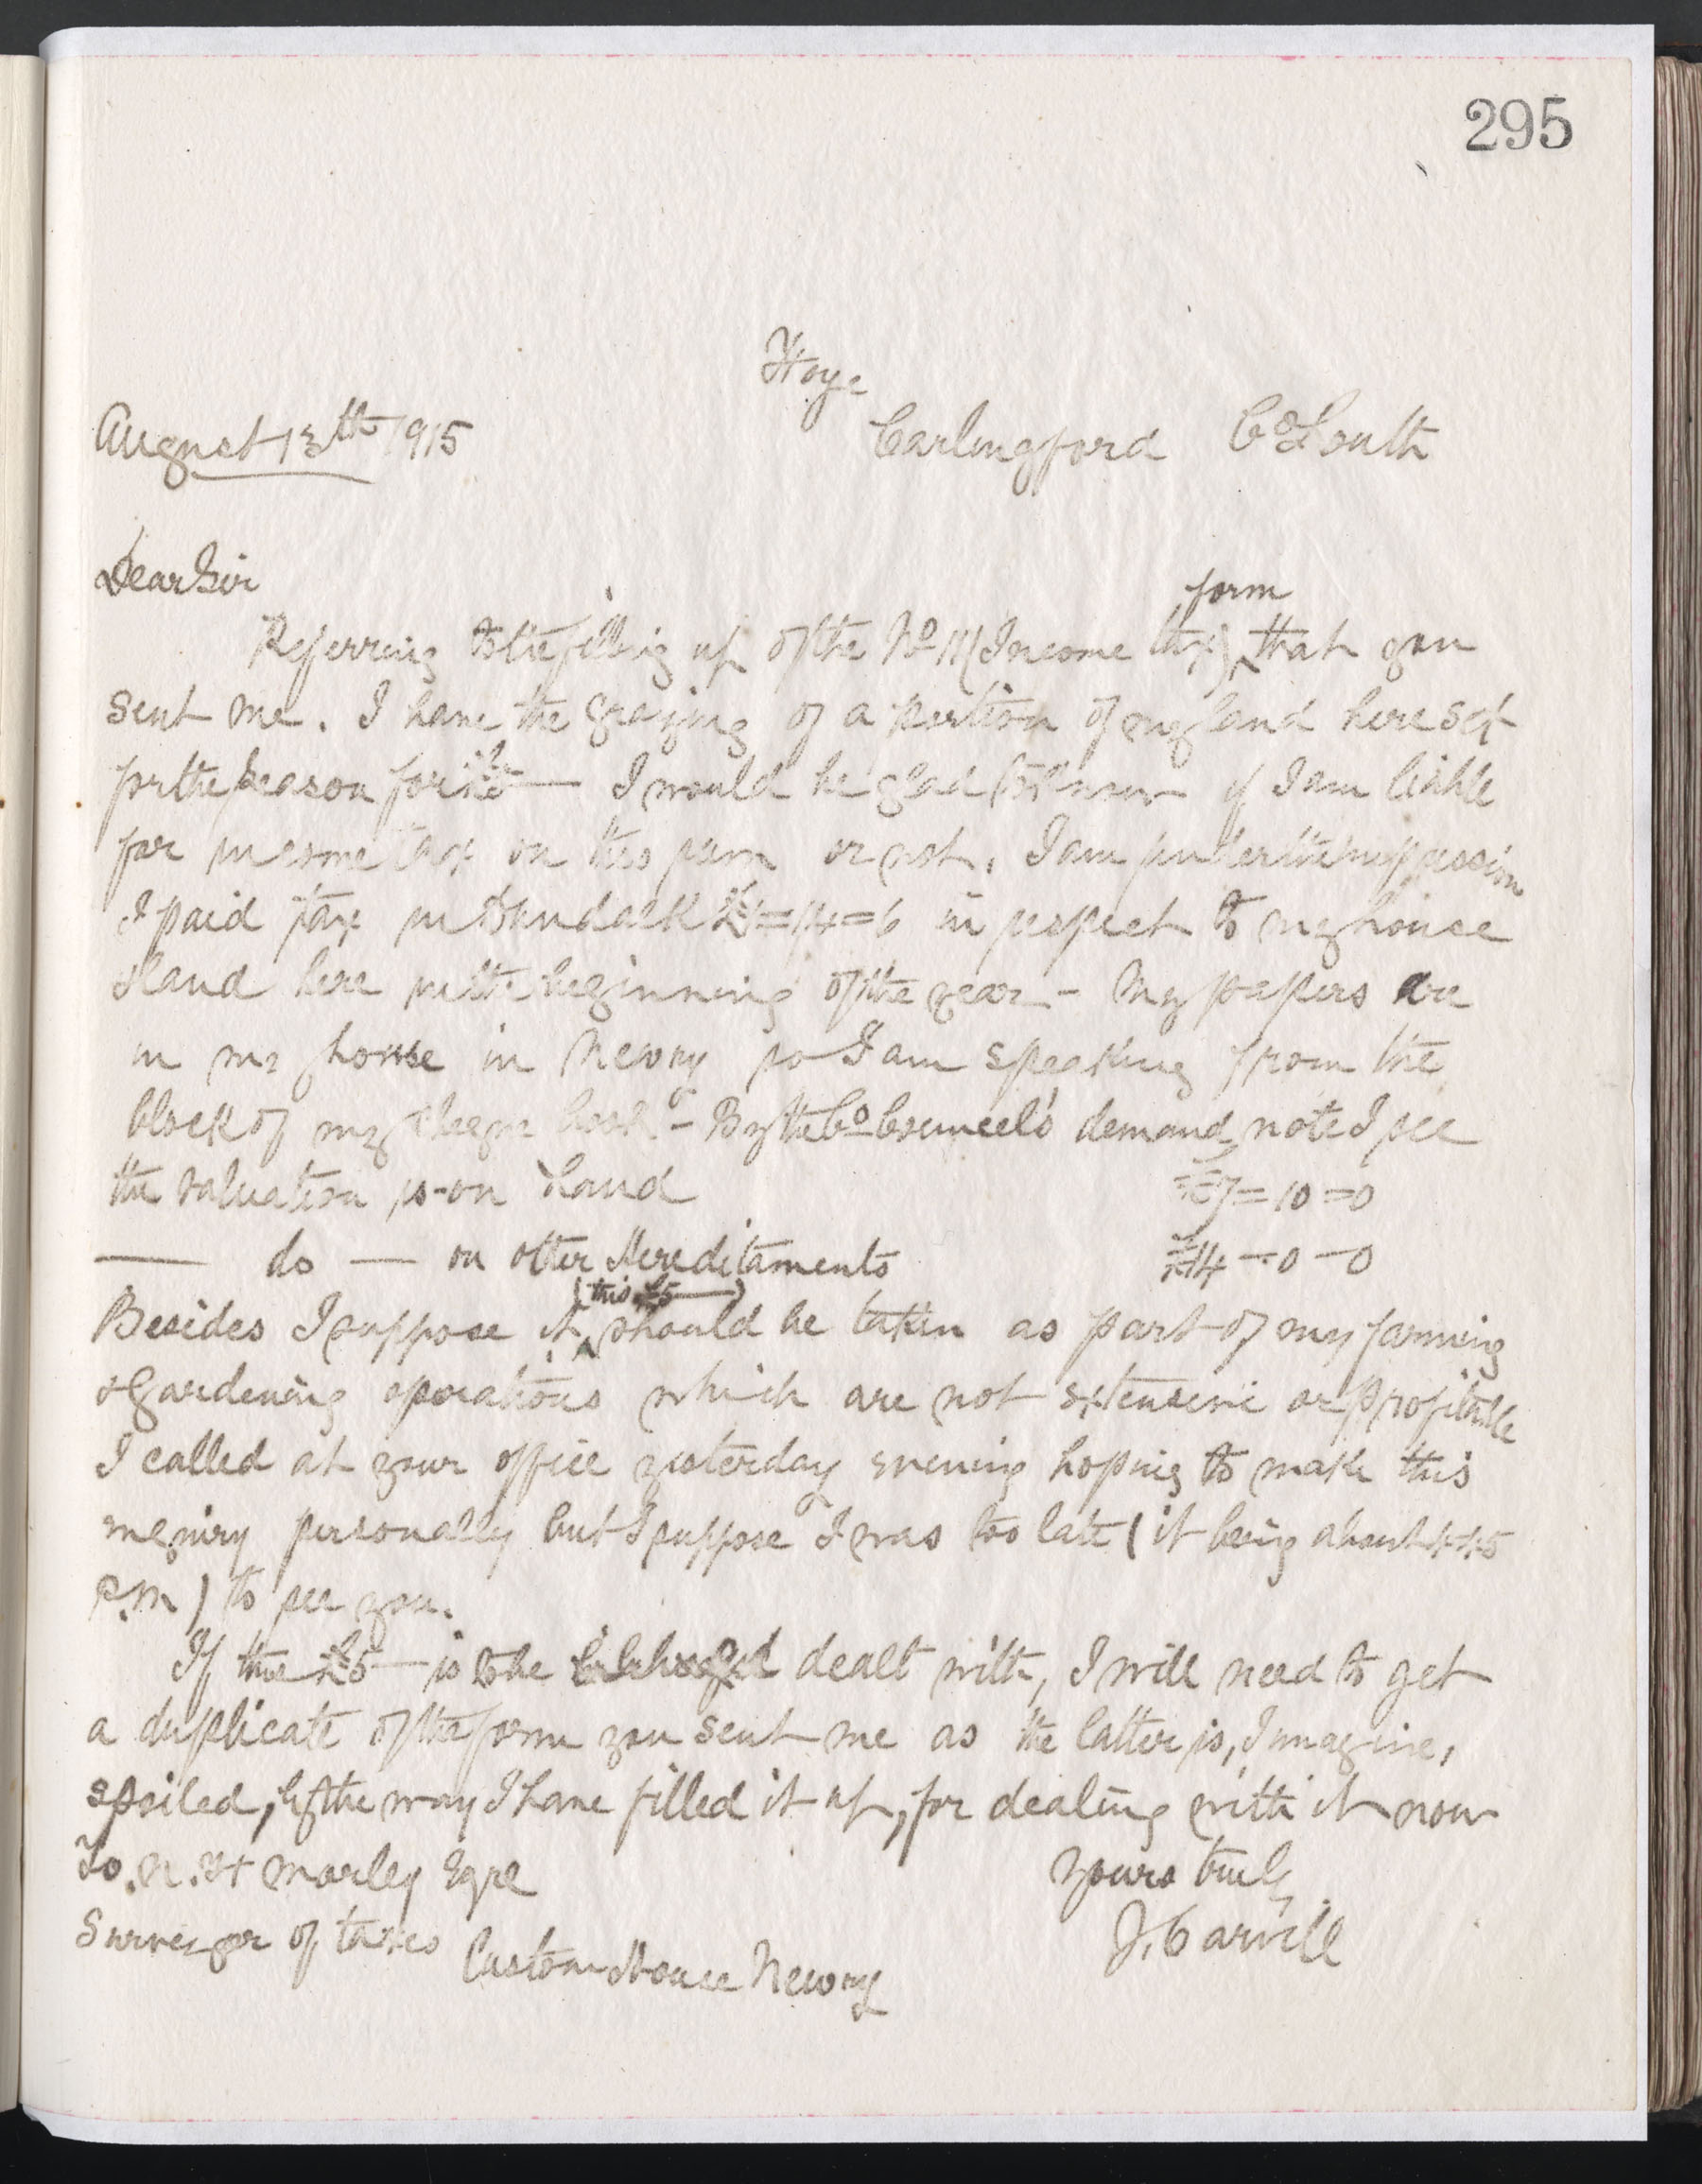 295
August 13th 1915
Carlingford Co Louth
Dear Sir
form
Referring to the filling up of the No 11 (Income tax) that you
sent me. I have the grazing of a portion of my land here set
for the season for £5 — I would be glad to know if I am liable
for income tax on this sum or not. I am under the impression
I paid tax in Dundalk =14=6 in respect to my house
& land here in the beginning of the year - My papers are
in my house in Newry so I am speaking from the
block of my cheque book - By the Co Council's demand note I see
the valuation is on Land £7=10=0
— do — on other Hereditaments £14-0-0
(this £5—)
Besides I suppose it should be taken as part of my farming
& gardening operations which are not extensive or profitable
I called at your office yesterday evening hoping to make this
enquiry personally but I suppose I was too late (it being about 4 45
P.M) to see you.
If this £5 — is to be dealt with, I will need to get
a duplicate of the form you sent me as the latter is, I imagine,
spoiled, by the way I have filled it up, for dealing with it now
To. N. H Morley Esqre Yours truly
Surveyor of taxes J. Carvill
Custom House Newry